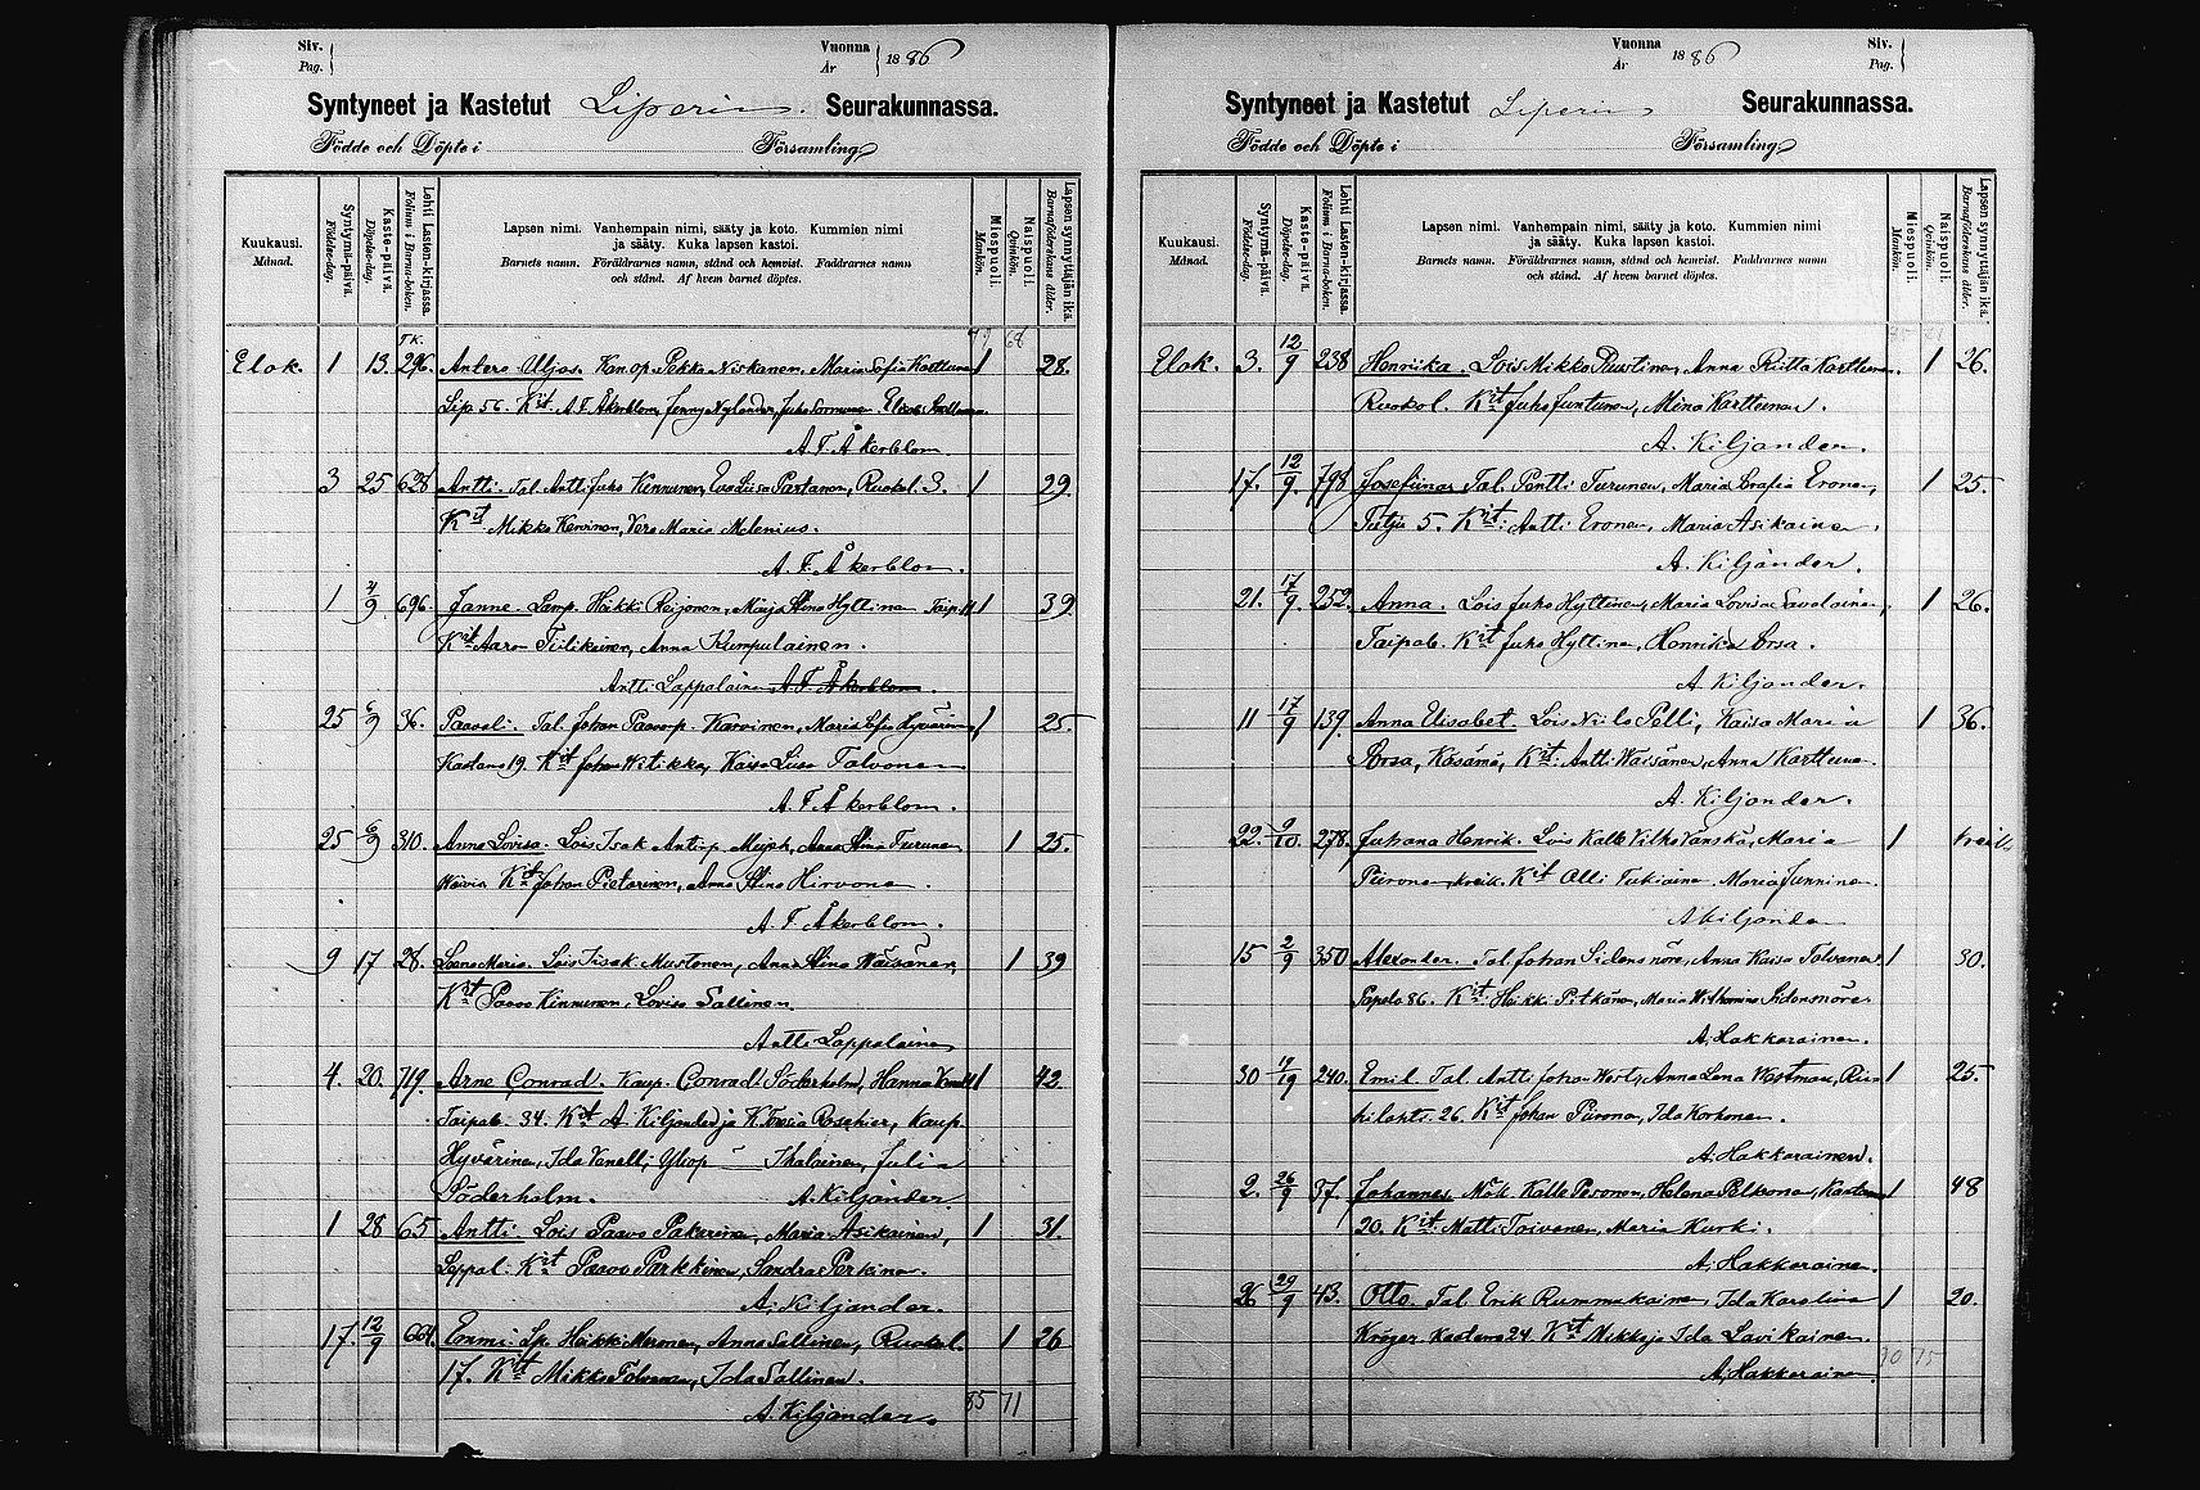 Siv.
Pag.
Vuonna
År
1886
Syntyneet ja Kastetut Liperin Seurakunnassa.
Födde och Döpte i Församling
Kuukausi.
Månad.
Syntymä-päivä.
Födelse-dag.
Kaste-päivä.
Döpelse-dag.
Lehti Lasten-kirjassa.
Folium i Barna-boken.
Lapsen nimi. Vanhempain nimi, sääty ja koto. Kummien nimi
ja sääty. Kuka lapsen kastoi.
Barnets namn. Föräldrarnes namn, stånd och hemvist. Faddrarnes namn
och stånd. Af hvem barnet döptes.
Miespuoli.
Mankön.
Naispuoli.
Qvinkön.
Lapsen synnyttäjän ikä.
Barnaföderskans ålder.
68
Elok. 1 13. 296. Antero Uljas. Kan. op. Pekka Niskanen, Maria Sofia Karttunen 1 28.
Lip. 56. Kit. A. F. Åkerblom, Jenny Nylander, Juho Sormunen.
A. F. Åkerblom
3 25 628 Antti. Tal. Antti Juho Kinnunen, Eva Liisa Partanen, Ruokol. 3. 1 29.
Kit Mikko Kervinen, Vera Maria Melenius.
A. F. Åkerblom.
1 4/9 696. Janne. Lamp. Heikki Reijonen, Maija Stina Hyttinen Taip. 1 39.
Kit Aaron Tiilikainen, Anna Kumpulainen.
Antti Lappalainen A. F. Åkerblom.
25 6/9 36. Paavali. Tal. Johan Paavop. Karvinen, Maria Sofia Hyvärinen, 1 25.
Kaatamo 19. Kit Johan Witikka, Kaisa Liisa Tolvonen
A. F. Åkerblom.
25 6/9 310. Anna Lovisa. Lois Isak Antinp. Anna Stina Turunen 1 25.
Kit Johan Pietarinen, Anna Stina Hirvonen.
A. F. Åkerblom.
9 17 28. Leena Maria. Lois Iisak Mustonen, Anna Stina Wäisänen, 1 39
Kit Paavo Kinnunen, Lovisa Sallinen.
Antti Lappalainen
4. 20. 719. Arne Conrad. Kaup. Conrad Söderholm, Hanna 1 42
Taipal. 34. Kit A. Kiljander ja K. Rosehier, Kaup.
Hyvärinen, Ida Vanelli, Yliop — Ikalainen, Julia
Söderholm. A. Kiljander.
1 28 65 Antti. Lois Paavo Pakarinen, Maria Asikainen, 1 31.
Leppäl. Kit Paavo Parkkinen, Sandra Perkinen.
A. Kiljander.
17. 12/9 664. Emmi. Sp. Heikki Muronen, Anna Sallinen, Ruokol. 1 26
17. Kit Mikko Tolvanen, Ida Sallinen.
A. Kiljander.
85 71
Vuonna
År
1886
Siv.
Pag.
Syntyneet ja Kastetut Liperin Seurakunnassa.
Födde och Döpte i Församling
Kuukausi.
Månad.
Syntymä-päivä.
Födelse-dag.
Kaste-päivä.
Döpelse-dag.
Lehti Lasten-kirjassa.
Folium i Barna-boken.
Lapsen nimi. Vanhempain nimi, sääty ja koto. Kummien nimi
ja sääty. Kuka lapsen kastoi.
Barnets namn. Föräldrarnes namn, stånd och hemvist. Faddrarnes namn
och stånd. Af hvem barnet döptes.
Miespuoli.
Mankön.
Naispuoli.
Qvinkön.
Lapsen synnyttäjän ikä.
Barnaföderskans ålder.
Elok. 3. 12/9 238 Henriika. Lois Mikko Puustinen, Anna Riitta Karttunen. 1 26.
Ruokol. Kit Juho Juntunen, Mina Karttunen.
A. Kiljander.
17. 12/9. 798 Josefiina. Tal. Pentti Turunen, Maria Erona, 1 25.
Tutju 5. Kit: Antti Eronen, Maria Asikainen.
A. Kiljander.
21. 17/9. 252. Anna. Lois Juho Hyttinen, Maria Lovisa Savolainen, 1 26.
Taipal. Kit Juho Hyttinen, Henrika Orsa.
A. Kiljander.
11 17/9 139. Anna Elisabet. Lois Niilo Pelli, Kaisa Maria 1 36.
Orsa, Käsämä, Kit: Antti Wäisänen, Anna Karttunen.
A. Kiljander.
22. 9/10. 278. Juhana Henrik. Lois Kalle Vilho Vänskä, Maria 1 kreik.
Piironen, kreik. Kit Olli Tukiainen. Maria Junninen.
A Kiljander
15 2/9 350 Alexander. Tal. Johan Sidensnöre, Anna Kaisa Tolvanen. 1 30.
Papelo 86. Kit: Heikki Pitkänen, Maria Wilhemina Sidensnöre.
A. Hakkarainen.
30 19 240. Emil. Tal. Antti Johan Anna Lena Westman, 1 25.
26. Kit Johan Piironen, Ida Korhonen.
A. Hakkarainen.
2. 26/9 37. Johannes. Mök. Kalle Pesonen, Helena Pelkonen, Kaatamo 1 48
20. Kit. Matti Toivanen, Maria Kurki.
A. Hakkarainen.
26 29/9 43. Otto. Tal. Erik Rummukainen, Ida Karolina 1 20.
Kröger Kaatamo 24 Kit Mikko ja Ida Lavikainen.
90 75
A. Hakkarainen.